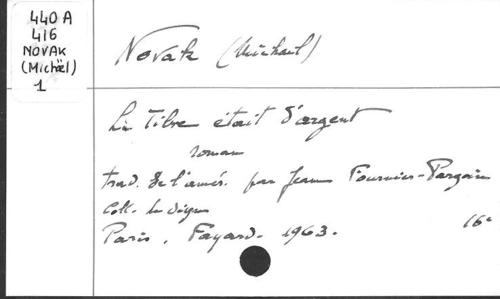 440 A
416
NOVAK
(Michäel)
1
Novak (Michael)
Le Tibre était d'argent
roman
trad. de l'amér. par Jeanne Fournier-Pargoire
Coll.
Paris. Fayard. 1963. 16°